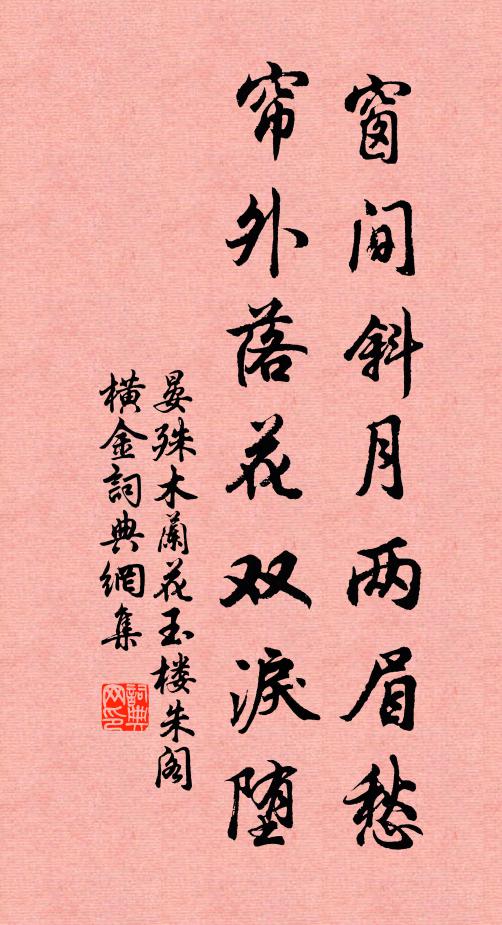 窗间斜月两眉愁
帘外落花双淚堕
晏殊木蘭花玉楼朱阁
横金詞典網集
詞典网印